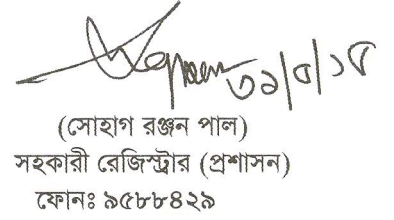 ৩১/৫/১৫
(সোহাগ রঞ্জন পাল)
সহকারী রেজিস্ট্রার (প্রশাসন)
ফোনঃ ৯৫৮৮৪২৯